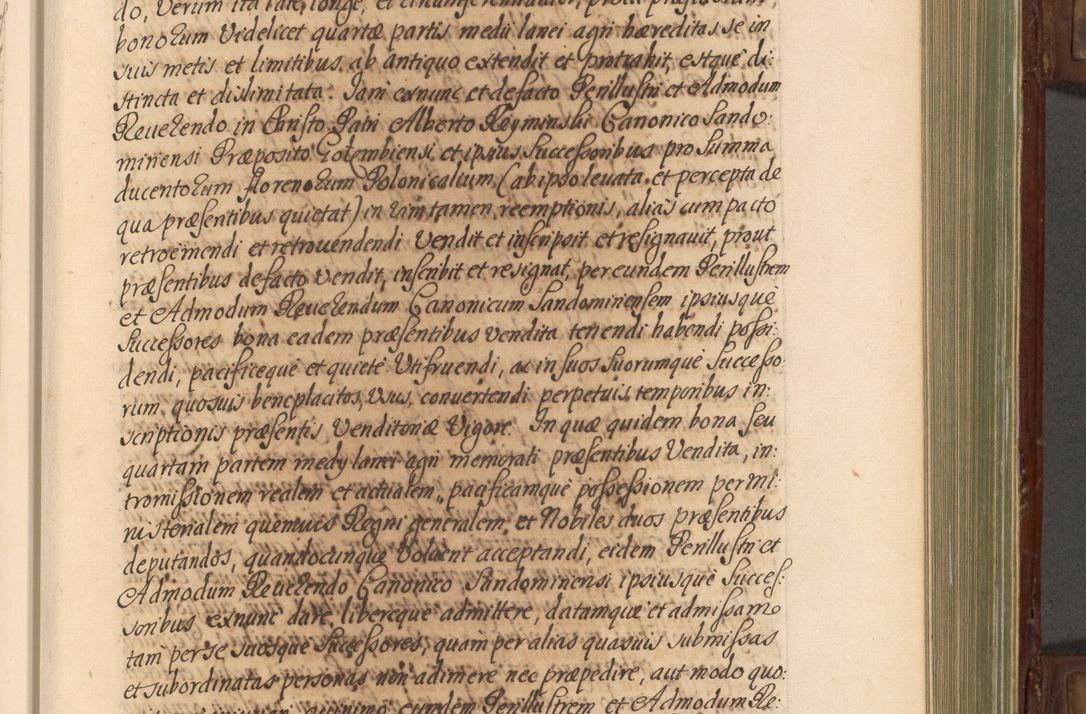 do, Verum ita late, longe, et
bonorum Videlicet quartæ partis medii lanei agri hæreditas se in
suis metis et limitibus ab antiquo extendit et protrahit, estque di:
stincta et dislimitata. Jam exnunc et defacto Perillustri et Admodum
Reverendo in Christo Patri Alberto Reyminski Canonico Sando:
miriensi Præposito Golembiensi et ipsius Successoribus pro Summa
ducentorum florenorum Polonicalium (ab ipso levata et percepta de
qua præsentibus quietat) in vim tamen reemptionis, alias cum pacto
retroemendi et retrovendendi Vendit et inscripsit et resignavit, prout
præsentibus defacto Vendit, inscribit et resignat, per eundem Perillustrem
et Admodum Reverendum Canonicum Sandomiriensem ipsiusque
Successores bona eadem præsentibus vendita tenendi habendi possi:
dendi, pacificeque et quiete Utifruendi, ac in suos Suorumque Successo:
rum quosvis beneplacitos, Usus, convertendi perpetuis temporibus in:
scriptionis præsentis Venditoriæ Vigore. In quæ quidem bona seu
quartam partem medy lanei agri memorati præsentibus Vendita, in:
tromissionem realem et actualem, pacificamque possessionem per mi:
nisterialem quemvis Regni generalem et Nobiles duos præsentibus
deputandos, quandocunque Voluerit acceptandi, eidem Perillustri et
Admodum Reverendo Canonico Sandomiriensi ipsiusque Succes:
soribus exnunc dare, libereque admittere, datamque et admissam
tam per se suosque Successores, quam per alias quasvis submissas
et subordinatas personas non adimere nec præpedire, aut modo quo:
quinimo eundem Perillustrem et Admodum Re: